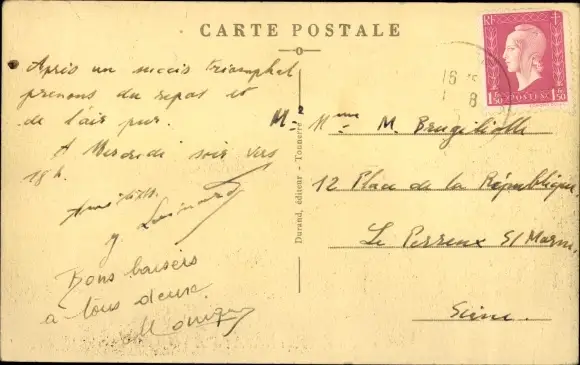 CARTE POSTALE
Après un succès triomphal
prenons du repos et
de l'air pur.
A Mercredi soir vers
18 h.
Amitiés.
Bons baisers
à tous deux
Monique
Durand, éditeur - Tonnerre
RF
1F50 POSTES 1F50
16
8
Mr Mme M.
12 Place de la République
Le Perreux S/ Marne
Seine.